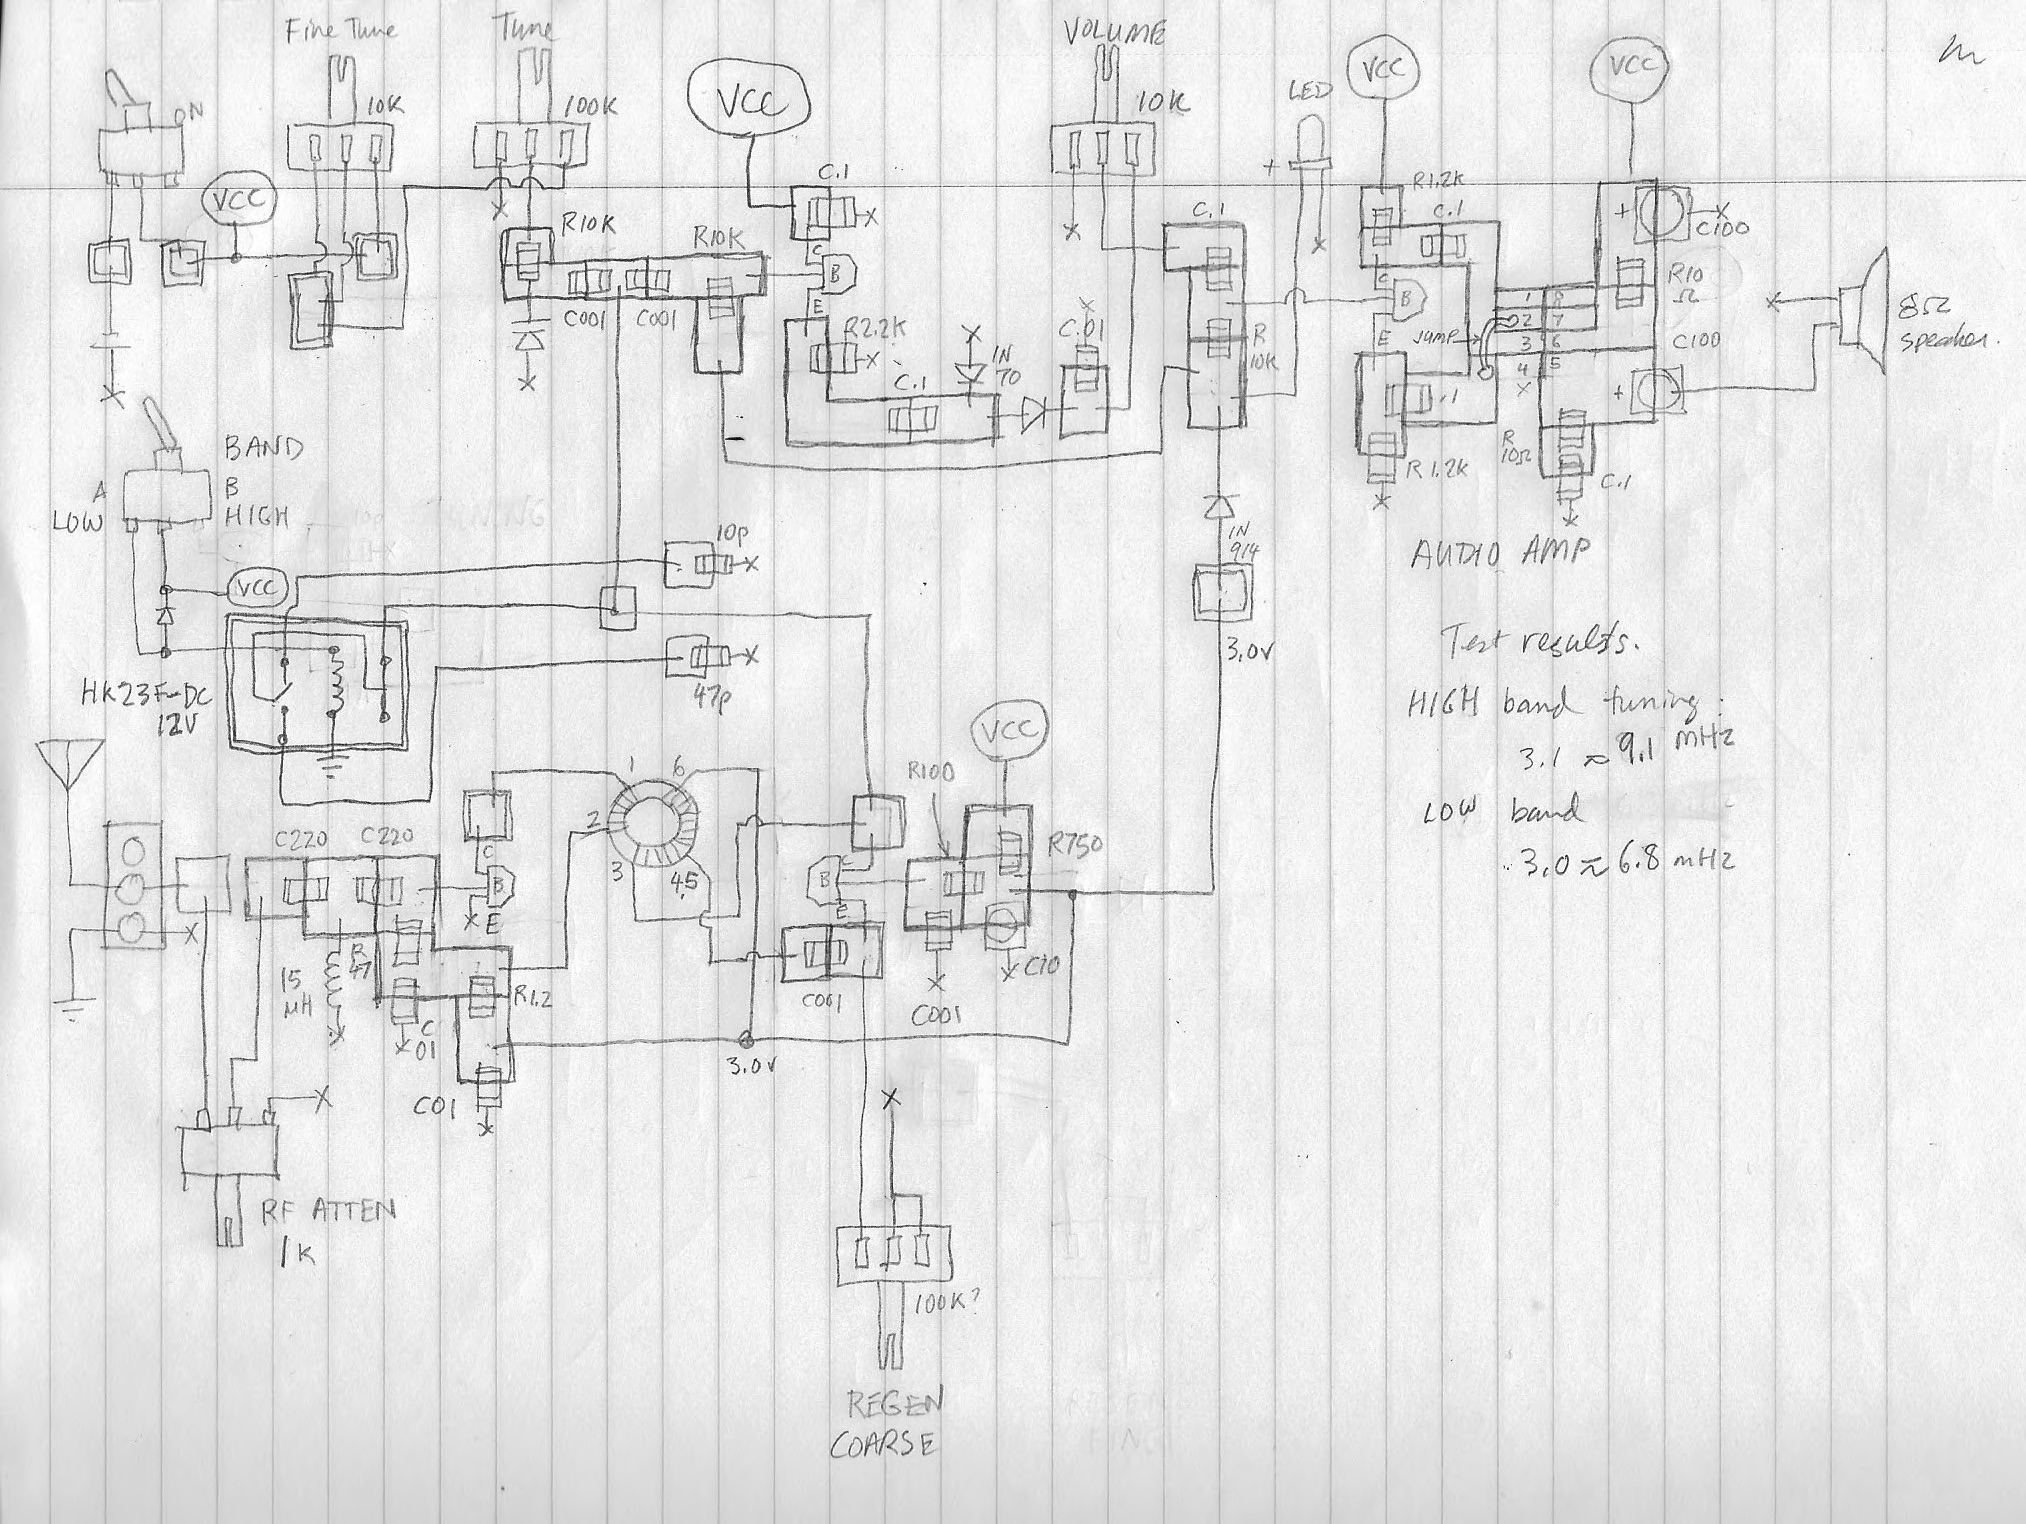 Fine Tune
Tune
VOLUME
ON
10K
100K
VCC
10K
LED
VCC
VCC
VCC
C.1
+
R1.2K
C.1
C.1
+
C100
R10K
R10K
C
B
E
C001
C001
R2.2K
1N
70
C.1
C.01
R
10K
C
B
E
JUMP
1
2
3
4
8
7
6
5
R10
Ω
C100
+
8Ω
speaker.
.1
R1.2K
R
10Ω
C.1
BAND
A
LOW
B
HIGH
VCC
10p
47p
1N
914
3.0V
AUDIO AMP
HK23F-DC
12V
Test results.
HIGH band tuning:
3.1 ≈ 9.1 MHz
LOW band
3.0 ≈ 6.8 MHz
VCC
1
6
2
3
4,5
R100
R750
C220
C220
C
B
E
C
B
E
15
μH
R
47
C
01
R1.2
C001
C001
C10
3.0V
C01
RF ATTEN
1K
100K?
REGEN
COARSE